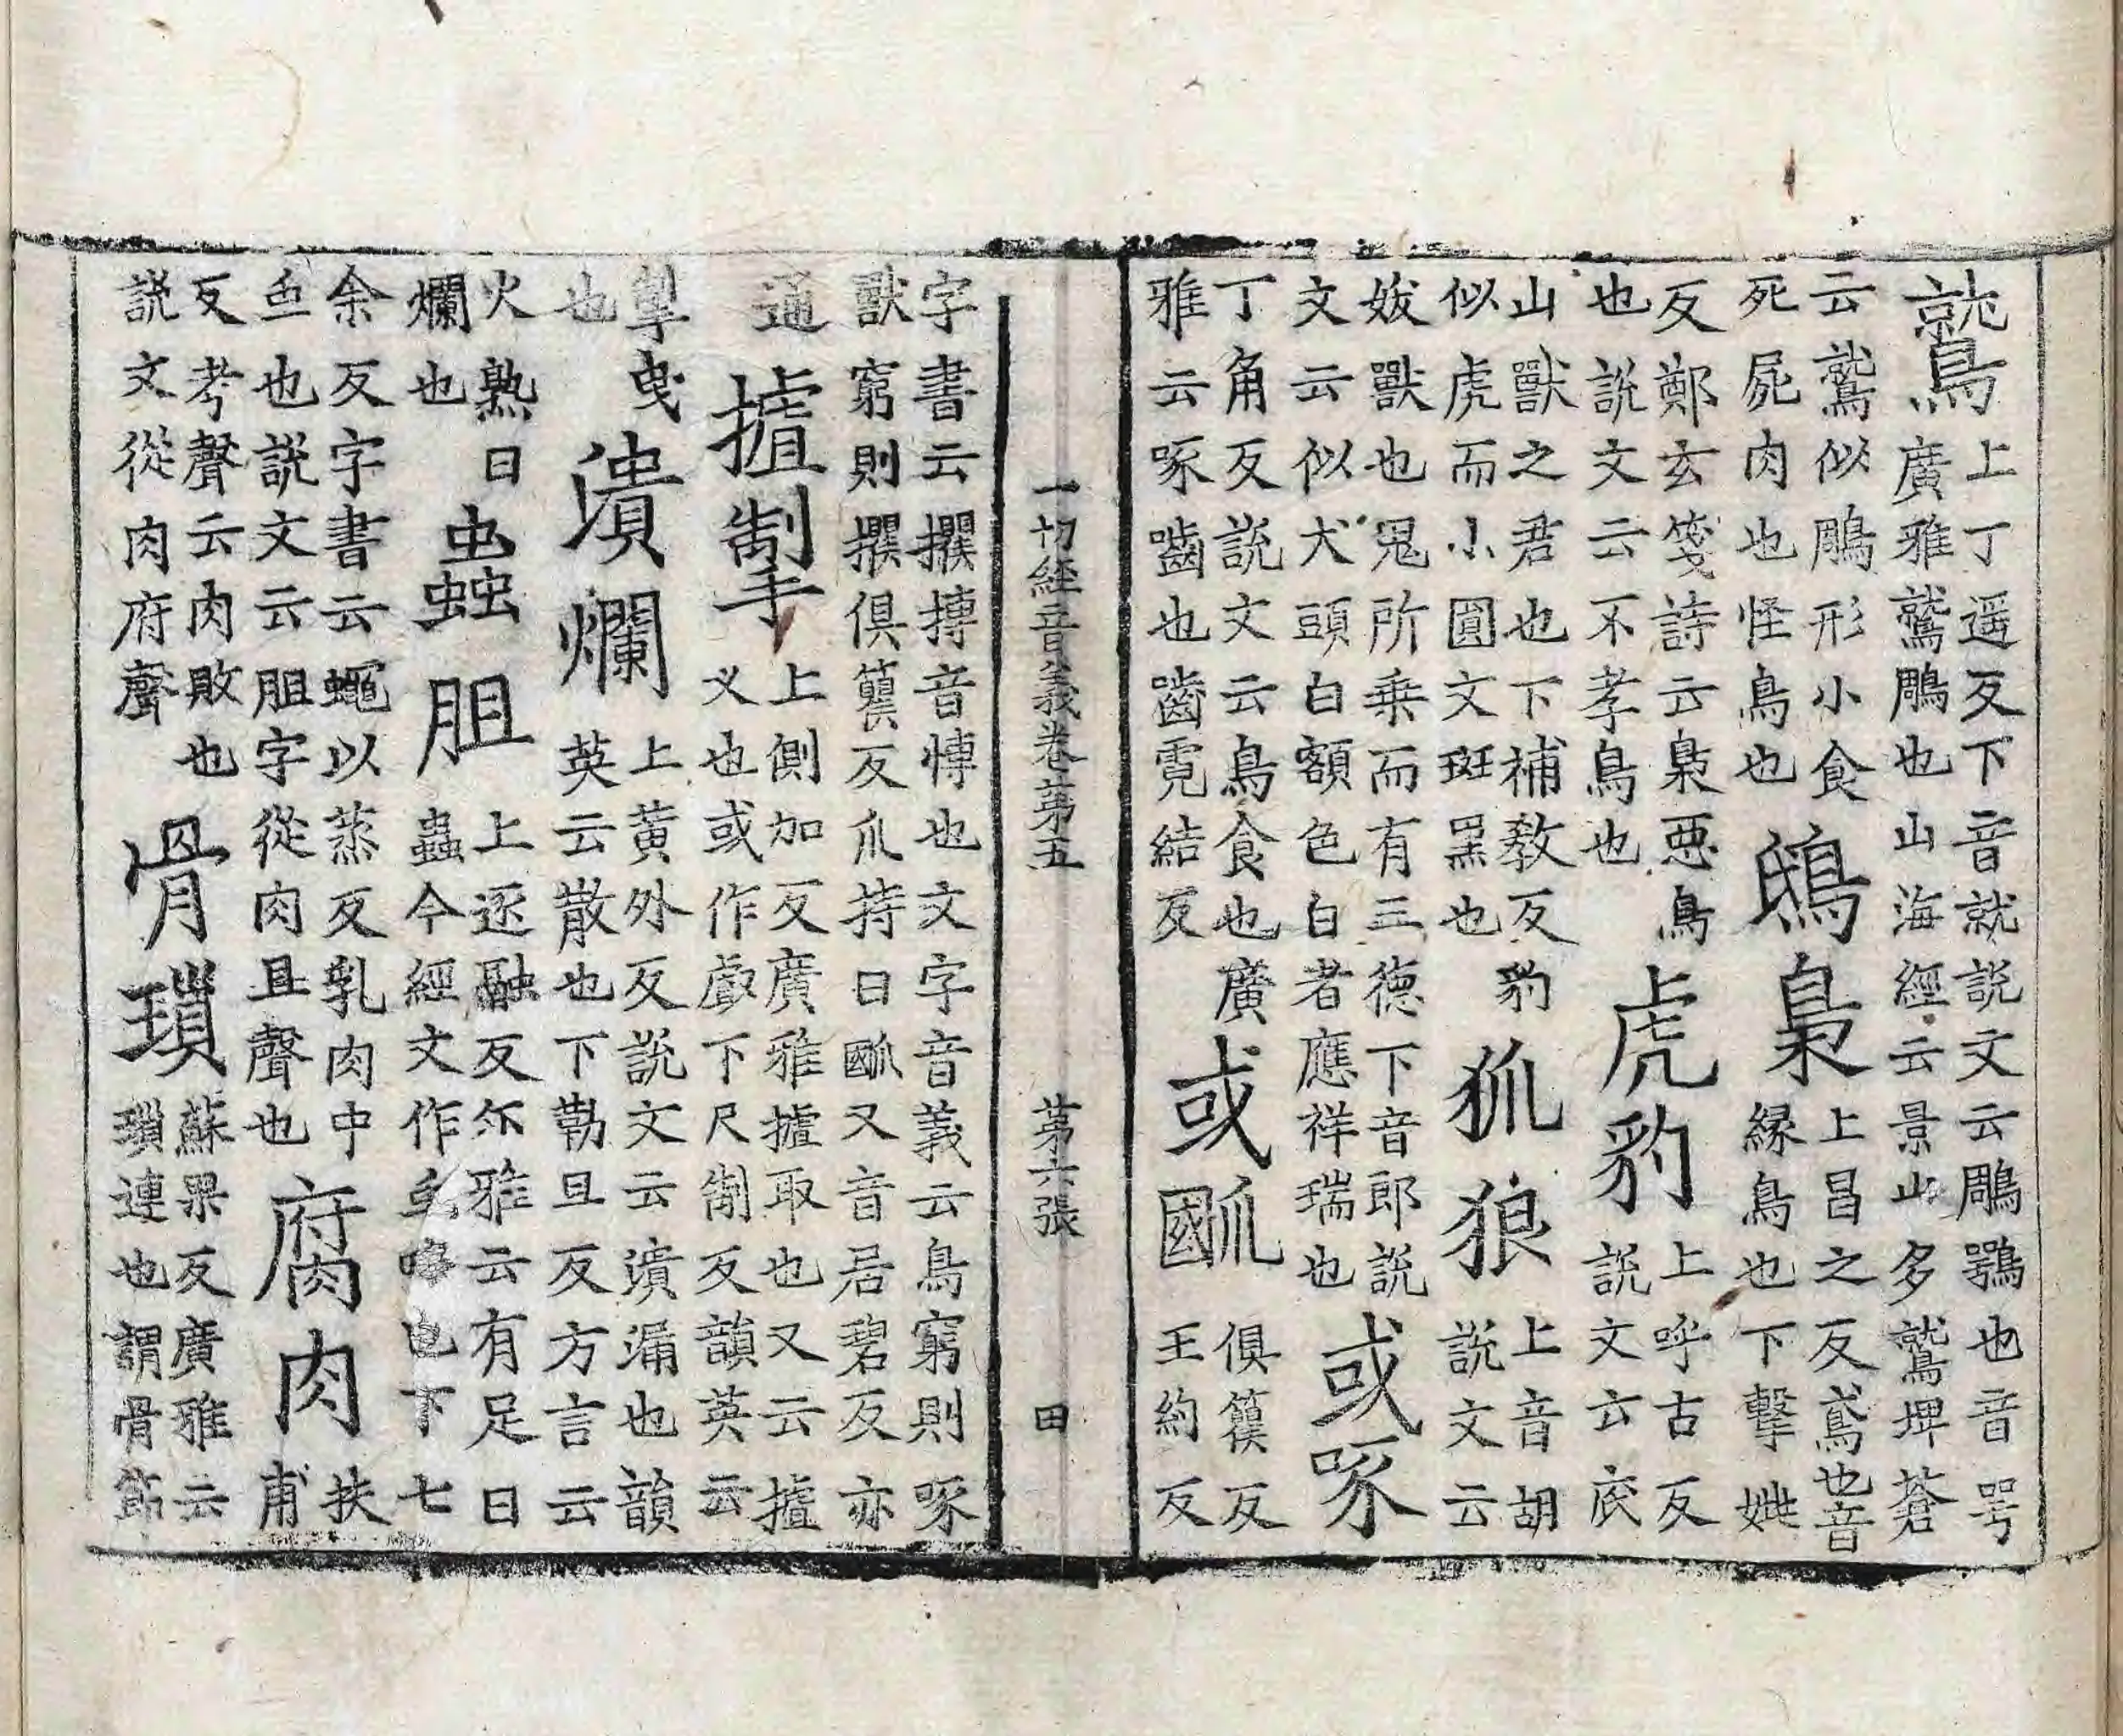 鷲上丁遥反下音就説文云鵰鶚也音咢
廣雅鷲鵰也山海經云景山多鷲埤蒼
云鷲似鵰形小食
死屍肉也怪鳥也
鵄梟上昌之反鳶也音
縁鳥也下擊姚
反鄭玄箋詩云梟惡鳥
也説文云不孝鳥也
虎豹上呼古反
説文云虎
山獸之君也下補教反豹
似虎而小圓文斑黑也
狐狼上音胡
説文云
妭獸也鬼所乗而有三徳下音郎説
文云似犬頭白額色白者應祥瑞也
或啄
丁角反説文云鳥食也廣
雅云啄嚙也齒霓結反
或𤔗俱籆反
王約反
一切經音義卷第五 第六張 田
字書云攫搏音愽也文字音義云鳥窮則啄
獸窮則攫俱籆反爪持曰𤔗又音居碧反亦
通
摣掣上側加反廣雅摣取也又云摣
义也或作戲下尺制反韻英云
掣曳
也
潰爛上黃外反説文云潰漏也韻
英云散也下勒旦反方言云
火熟曰
爛也
蟲胆上逐融反尒雅云有足曰
蟲今經文作虫略也下七
余反字書云蠅以蒸反乳肉中
虫也説文云胆字從肉且聲也
腐肉扶
甫
反考聲云肉敗也
説文從肉府聲
骨瑣蘇果反廣雅云
瑣連也謂骨節